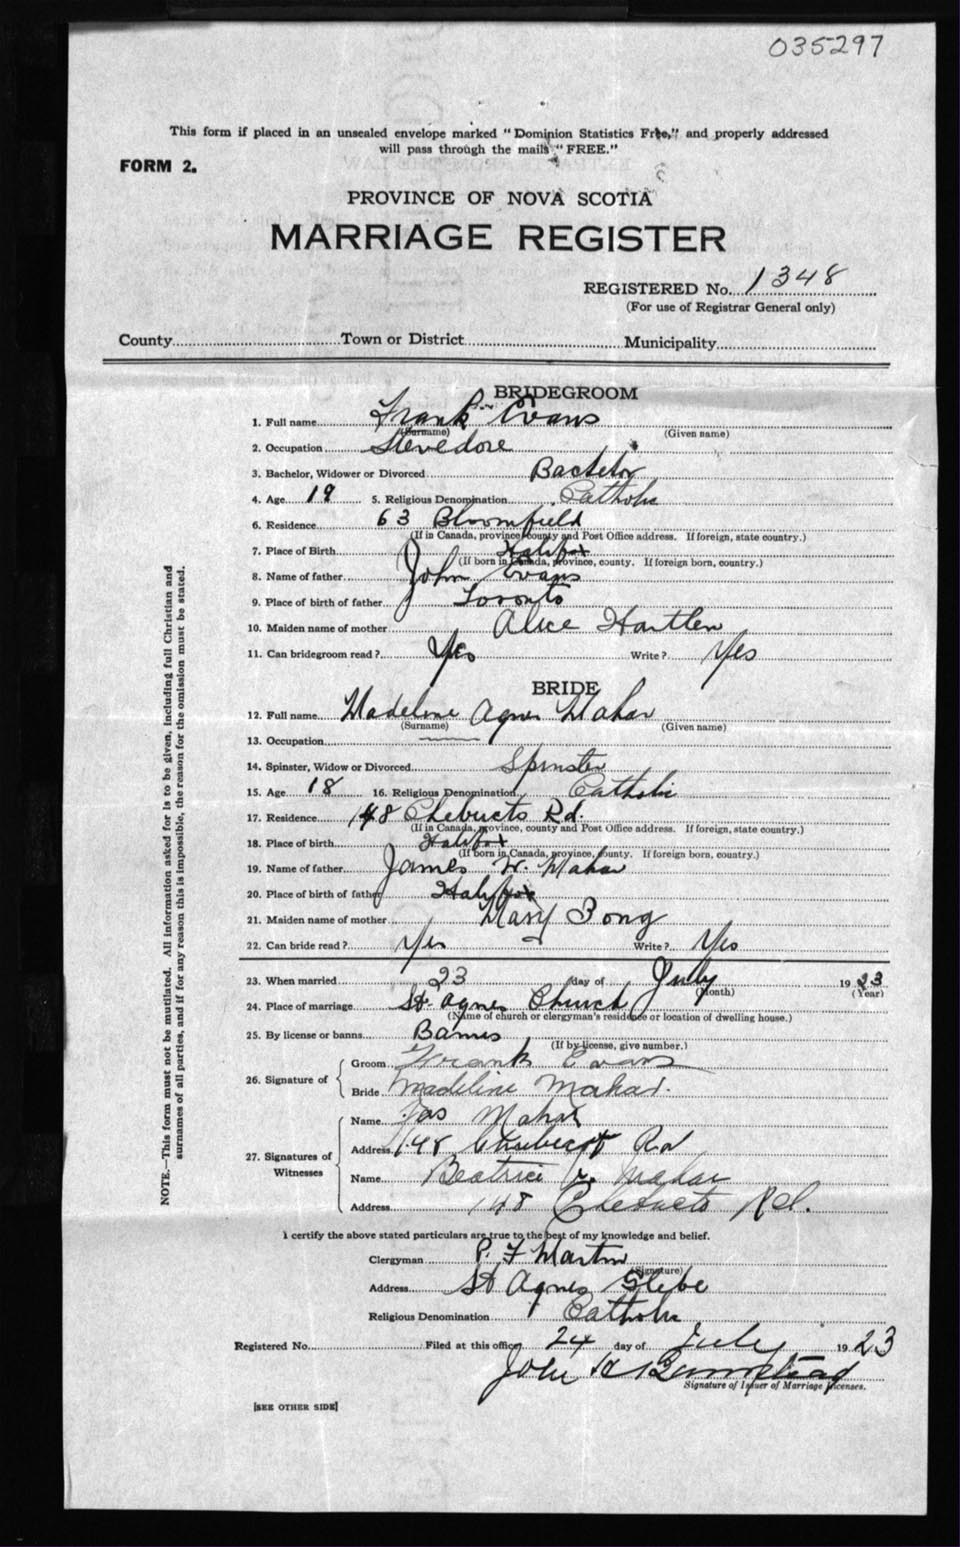 035297
This form if placed in an unsealed envelope marked "Dominion Statistics Free," and properly addressed
will pass through the mails "FREE."
FORM 2.
PROVINCE OF NOVA SCOTIA
MARRIAGE REGISTER
REGISTERED No. 1348
(For use of Registrar General only)
County Town or District Municipality
BRIDEGROOM
1. Full name Frank Evans
(Surname) (Given name)
2. Occupation Stevedore
3. Bachelor, Widower or Divorced Bachelor
4. Age 19 5. Religious Denomination Catholic
6. Residence 63 Bloomfield
(If in Canada, province, county and Post Office address. If foreign, state country.)
7. Place of Birth Halifax
(If born in Canada, province, county. If foreign born, country.)
8. Name of father John Evans
9. Place of birth of father Toronto
10. Maiden name of mother Alice Hartlen
11. Can bridegroom read? Yes Write? Yes
BRIDE
12. Full name Madeline Agnes Mahar
(Surname) (Given name)
13. Occupation
14. Spinster, Widow or Divorced Spinster
15. Age 18 16. Religious Denomination Catholic
17. Residence 148 Chebucto Rd.
(If in Canada, province, county and Post Office address. If foreign, state country.)
18. Place of birth Halifax
(If born in Canada, province, county. If foreign born, country.)
19. Name of father James W. Mahar
20. Place of birth of father Halifax
21. Maiden name of mother Mary
22. Can bride read? Yes Write? Yes
23. When married 23 day of July 1923
(Month) (Year)
24. Place of marriage St. Agnes Church
(Name of church or clergyman's residence or location of dwelling house.)
25. By license or banns Banns
(If by license, give number.)
26. Signature of Groom Frank Evans
Bride Madeline Mahar.
27. Signatures of Witnesses Name Jas Mahar
Address 148 Chebucto Rd
Name Beatrice Mahar
Address 148 Chebucto Rd.
I certify the above stated particulars are true to the best of my knowledge and belief.
Clergyman P. F Martin
(Signature)
Address St Agnes Glebe
Religious Denomination Catholic
Registered No. Filed at this office 24 day of July 1923
John
Signature of Issuer of Marriage Licenses.
[SEE OTHER SIDE]
NOTE.—This form must not be mutilated. All information asked for is to be given, including full Christian and
surnames of all parties, and if for any reason this is impossible, the reason for the omission must be stated.